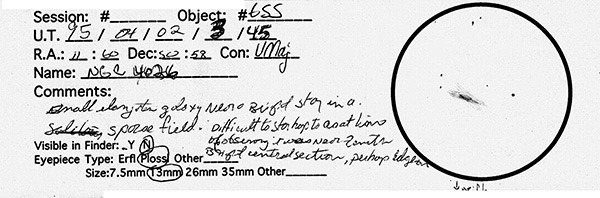 Session: #______ Object: #655
U.T. 95 / 04 / 02 / 3 / 45
R.A.: 11 : 60 Dec: 50 : 58 Con: UMaj
Name: NGC 4026
Comments:
Small elongated galaxy near a Bright star in a
sparse field. Difficult to starhop to as at time
Visible in Finder: Y N of observing it was near Zenith
Eyepiece Type: Erfl Ploss Other Bright central section, perhaps Edge on
Size: 7.5mm 13mm 26mm 35mm Other